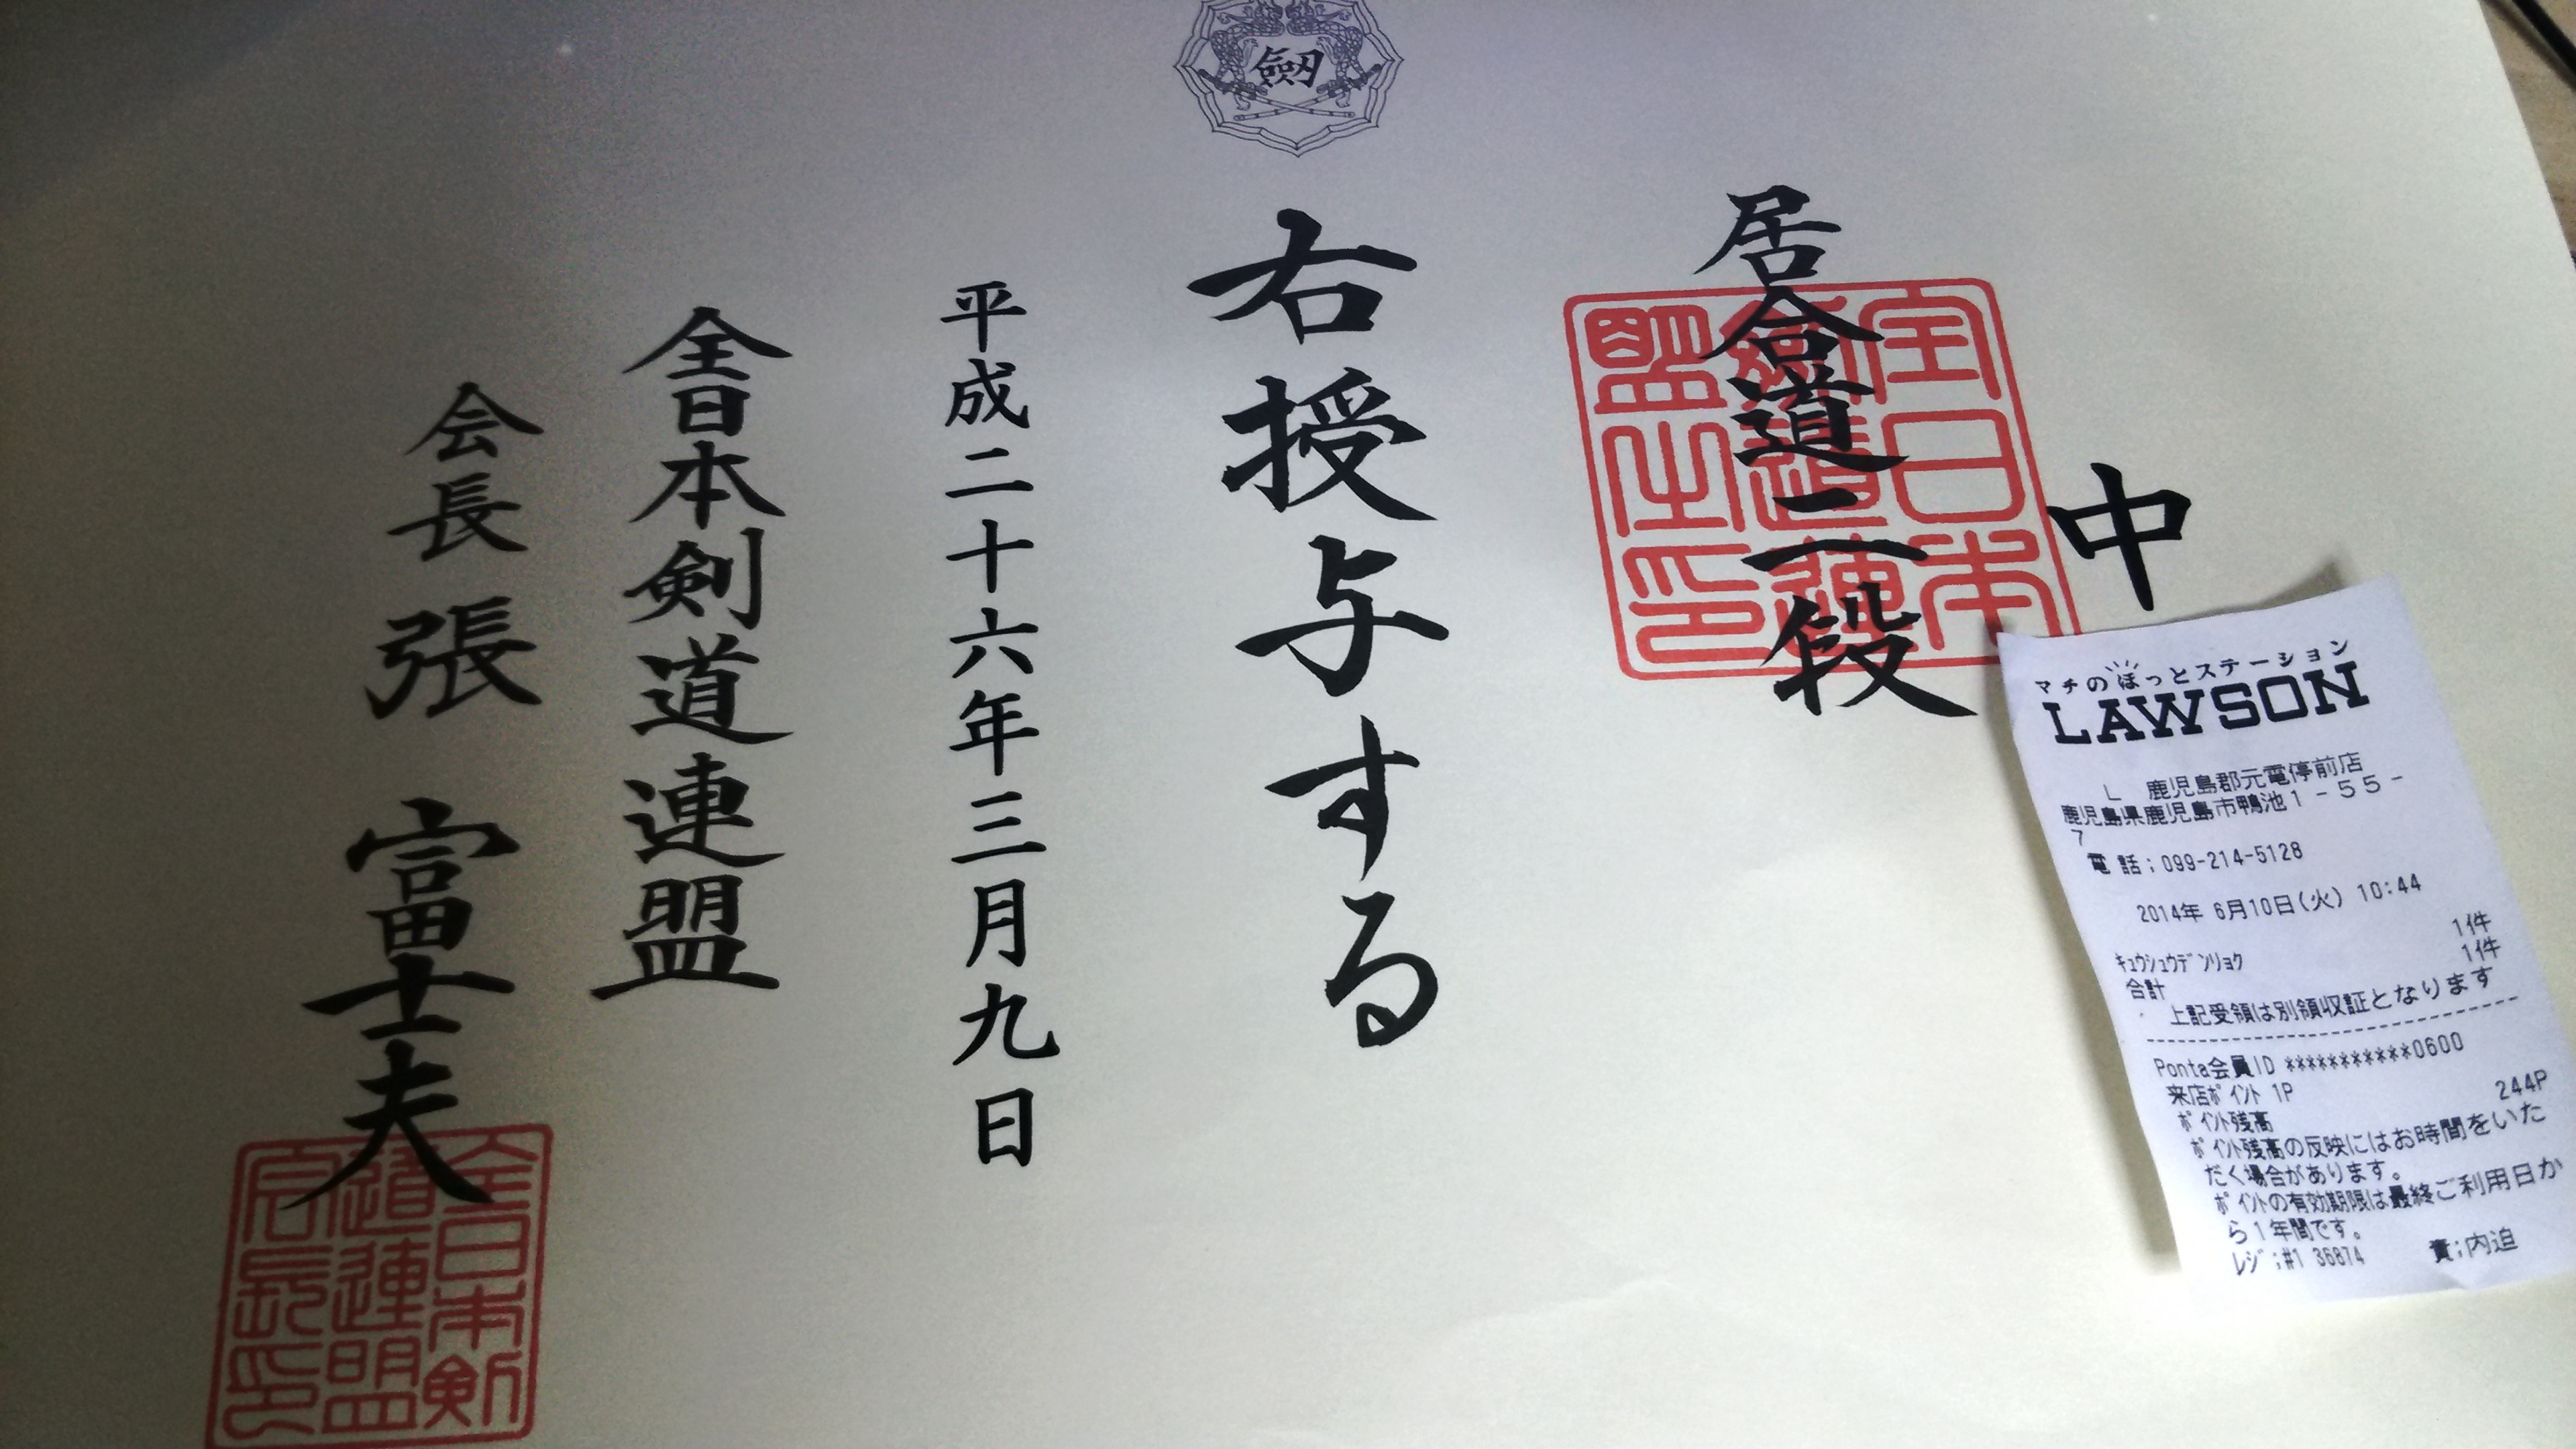 劔
中
居合道二段
右授与する
平成二十六年三月九日
全日本剣道連盟
会長 張 富士夫
全日本剣道連盟之印
全日本剣道連盟会長印
マチのほっとステーション
LAWSON
L 鹿児島郡元電停前店
鹿児島県鹿児島市鴨池1-55-
7
電話;099-214-5128
2014年 6月10日(火) 10:44
1件
ｷｭｳｼｭｳﾃﾞﾝﾘｮｸ 1件
合計
上記受領は別領収証となります
Ponta会員ID ***********0600
来店ﾎﾟｲﾝﾄ 1P
ﾎﾟｲﾝﾄ残高 244P
ﾎﾟｲﾝﾄ残高の反映にはお時間をいた
だく場合があります。
ﾎﾟｲﾝﾄの有効期限は最終ご利用日か
ら1年間です。
ﾚｼﾞ;#1 36874 責;内迫